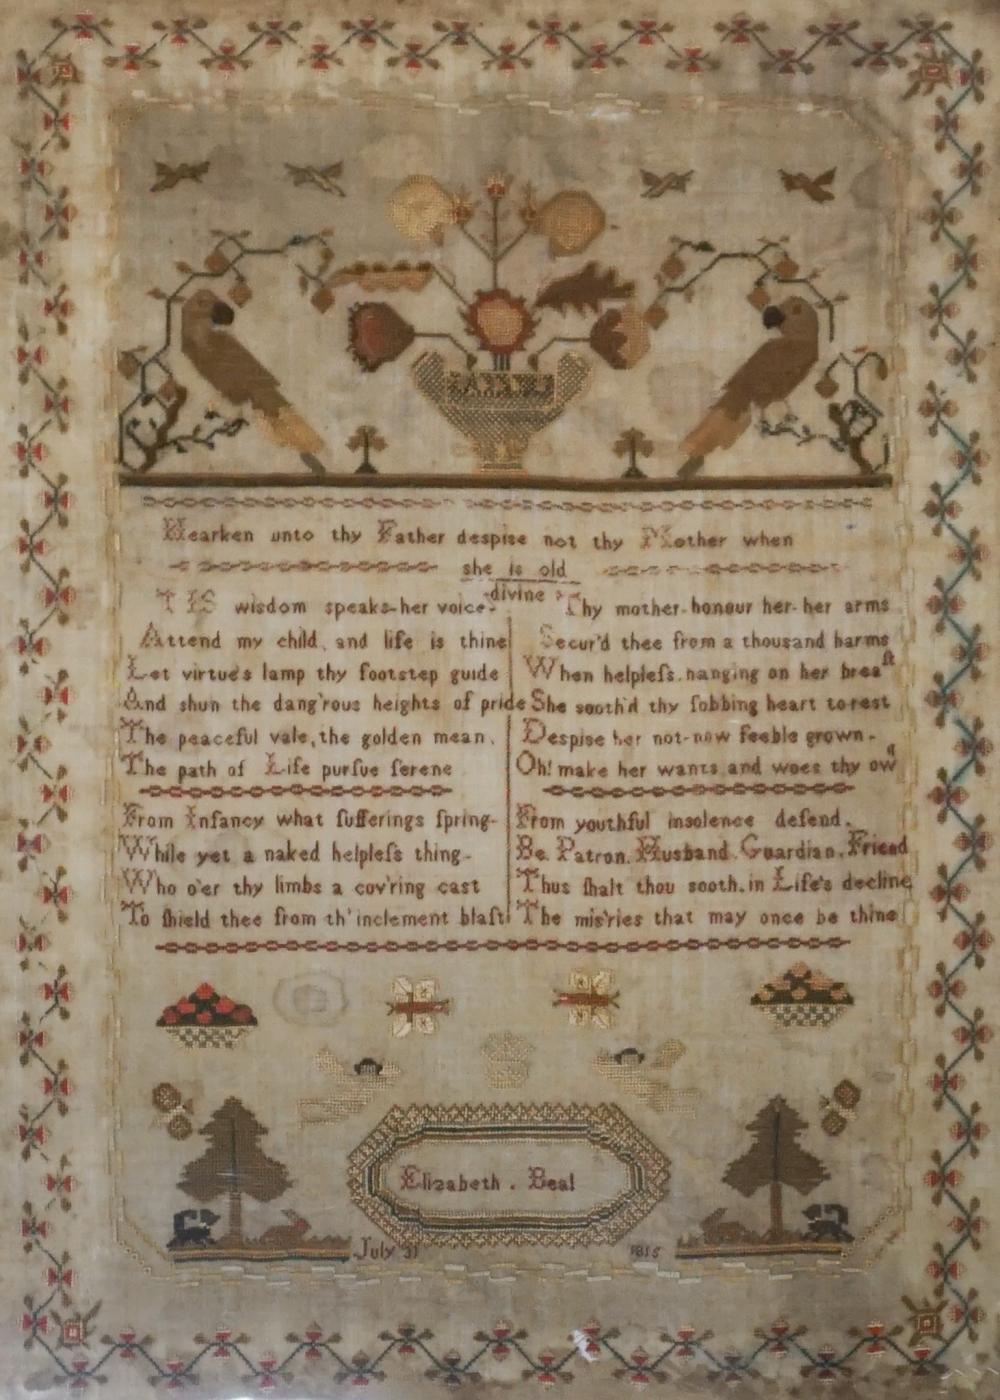 Hearken unto thy Father despise not thy Mother when
she is old
TIS wisdom speaks her voice divine
Attend my child, and life is thine
Let virtue's lamp thy footstep guide
And shun the dang'rous heights of pride
The peaceful vale, the golden mean.
The path of Life purſue ſerene
From Infancy what ſufferings ſpring
While yet a naked helpleſs thing
Who o'er thy limbs a cov'ring cast
To ſhield thee from th'inclement blaſt
Thy mother honour her her arms
Secur'd thee from a thousand harms
When helpleſs hanging on her breaſt
She sooth'd thy ſobbing heart to rest
Despise her not now feeble grown
Oh! make her wants and woes thy own
From youthful insolence defend.
Be Patron. Husband. Guardian. Friend
Thus ſhalt thou sooth in Life's decline
The mis'ries that may once be thine
Elizabeth . Beal
July 31 1815